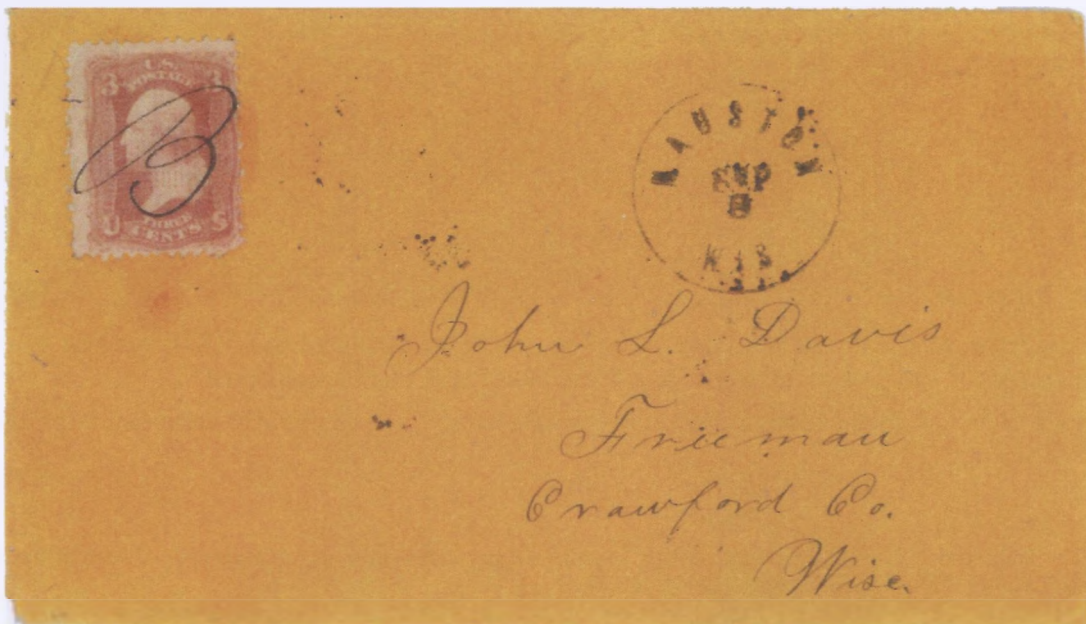 U.S.
POSTAGE
3 3
B
U S
THREE
CENTS
MAUSTON
SEP
WIS.
John L. Davis
Freeman
Crawford Co.
Wisc.